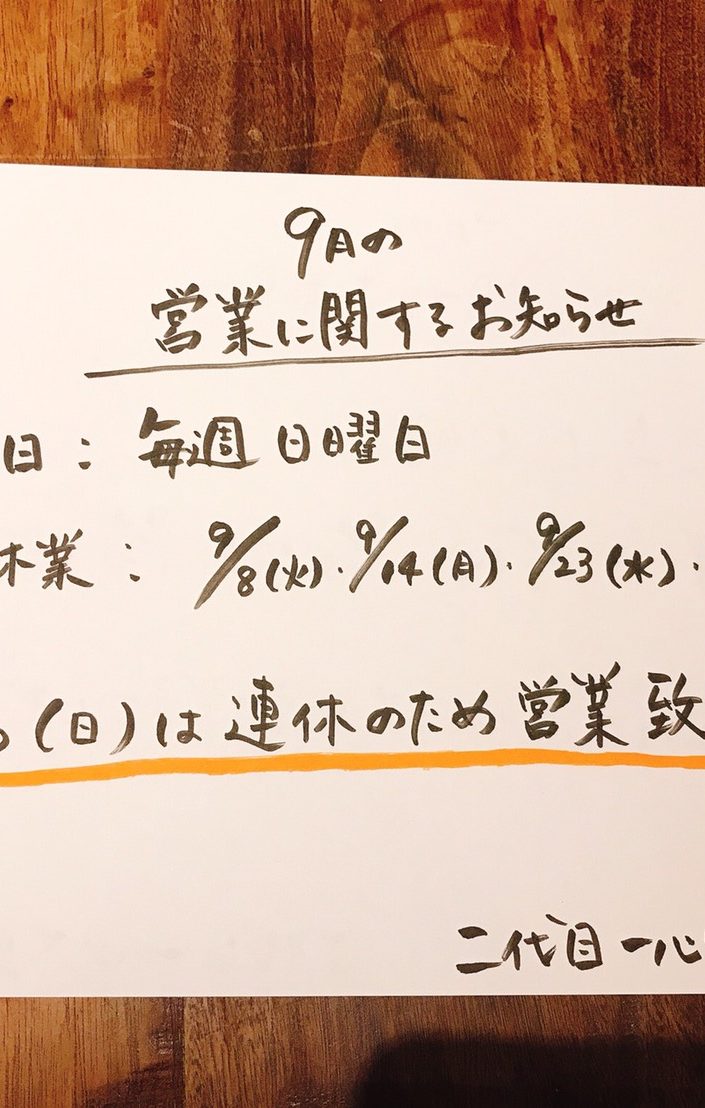 9月の
営業に関するお知らせ
日：毎週日曜日
休業：9/8(火)・9/14(月)・9/23(水)・
(日)は連休のため営業致
二代目一心